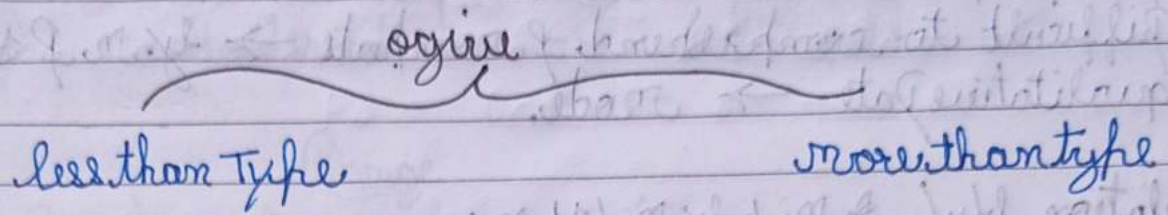 ogive
less than Type more than type